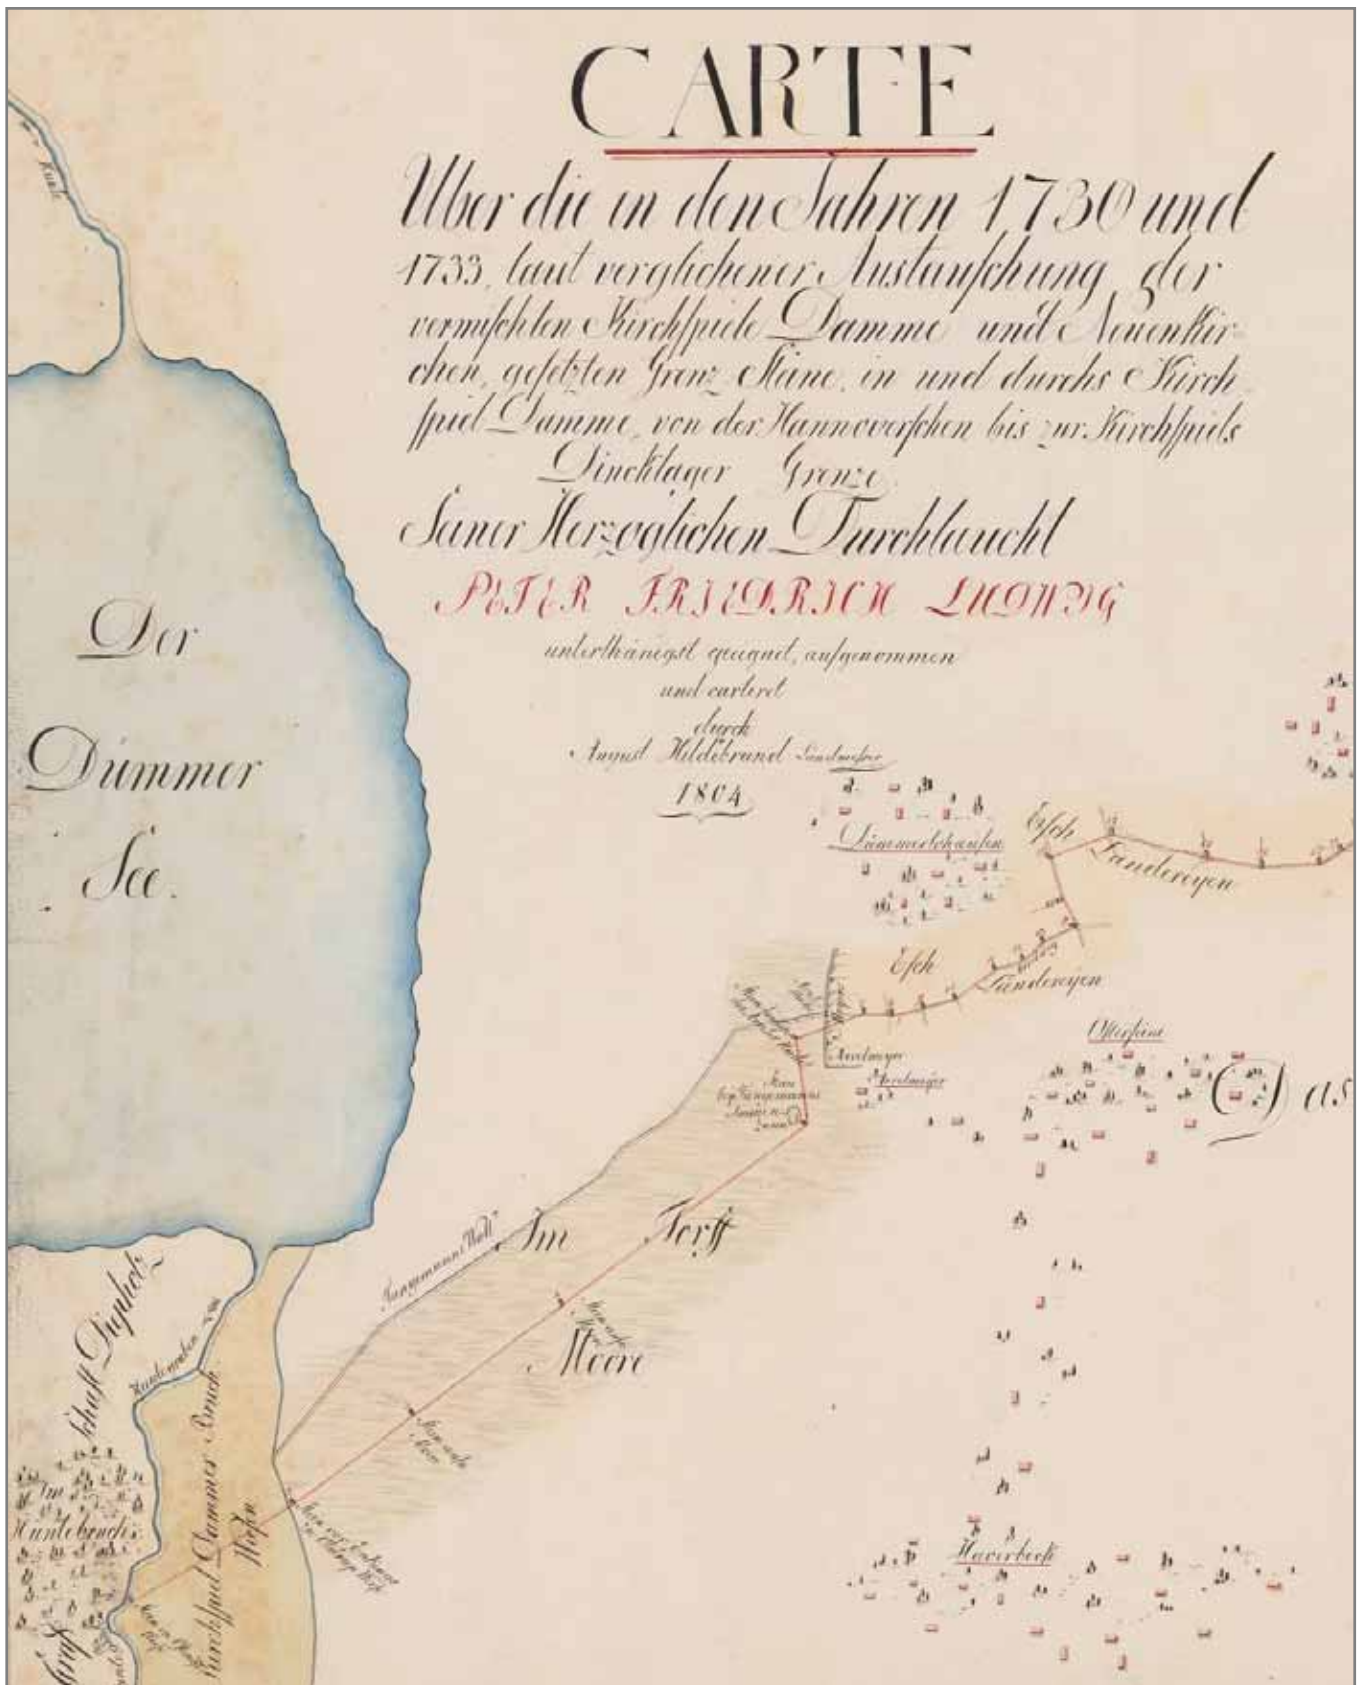 CARTE
Uber die in den Jahren 1730 und
1733, laut verglichener Austauschung der
vermischten Kirchspiele Damme und Neuenkir-
chen, gesetzten Grenz Steine, in und durchs Kirch-
spiel Damme, von der Hannoverschen bis zur Kirchspiels
Dincklager Grenze.
Seiner Herzoglichen Durchlaucht
PETER FRIEDRICH LUDWIG
unterthänigst geeignet, aufgenommen
und carteret
durch
August Hildebrand Landmesser
1804
Der
Dümmer
See.
Dümmerlohausen
Esch
Ländereyen
Esch
Ländereyen
Osterfeine
Das
Im
Torff
Moore
Huntegraben
Schaft Diepholz
Im
Huntebruch
Graf
Kirchspiel Dammer Bruch
Wiesen
Haverbeck